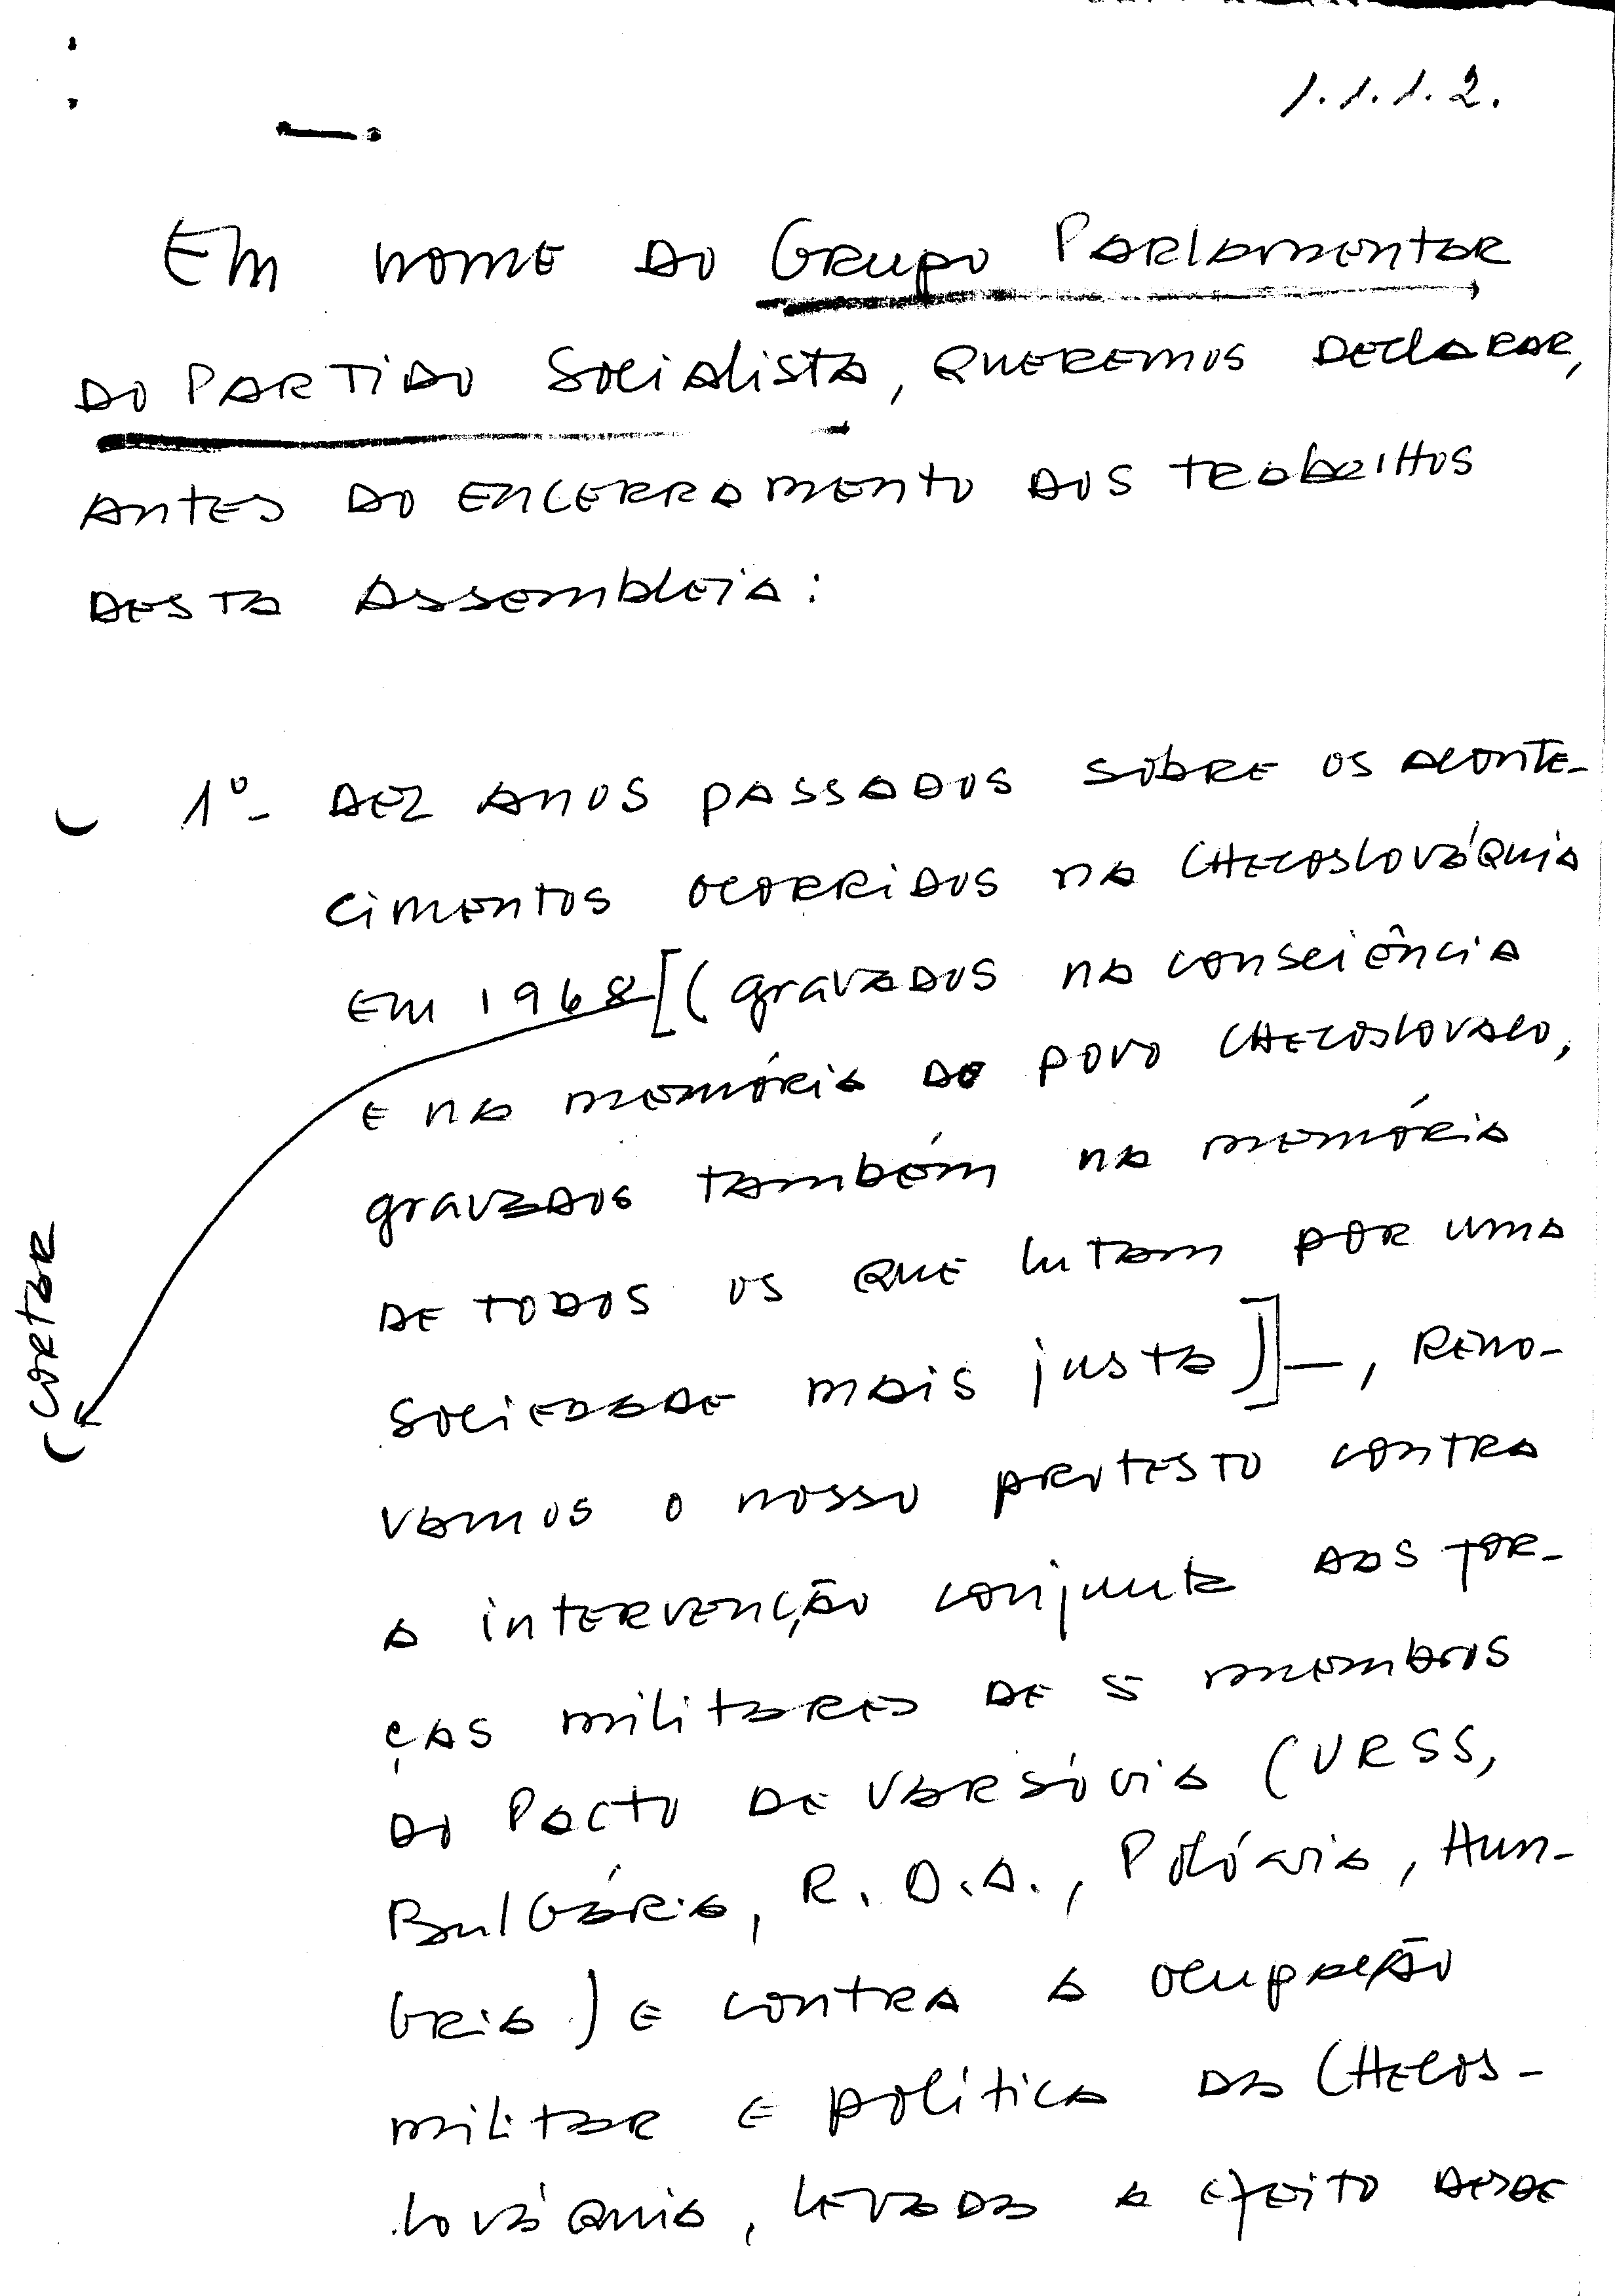 1.1.1.2.
Em nome do Grupo Parlamentar
do Partido Socialista, queremos declarar,
antes do encerramento dos trabalhos
desta Assembleia:
1º- Dez anos passados sobre os aconte-
cimentos ocorridos na Checoslováquia
em 1968 [(gravados na consciência
e na memória do povo checoslovaco,
gravados também na memória
de todos os que lutam por uma
sociedade mais justa)]—, reno-
vamos o nosso protesto contra
a intervenção conjunta das for-
ças militares de 5 membros
do Pacto de Varsóvia (URSS,
Bulgária, R.D.A., Polónia, Hun-
gria) e contra a ocupação
militar e política da Checos-
lováquia, levada a efeito desde
cortar